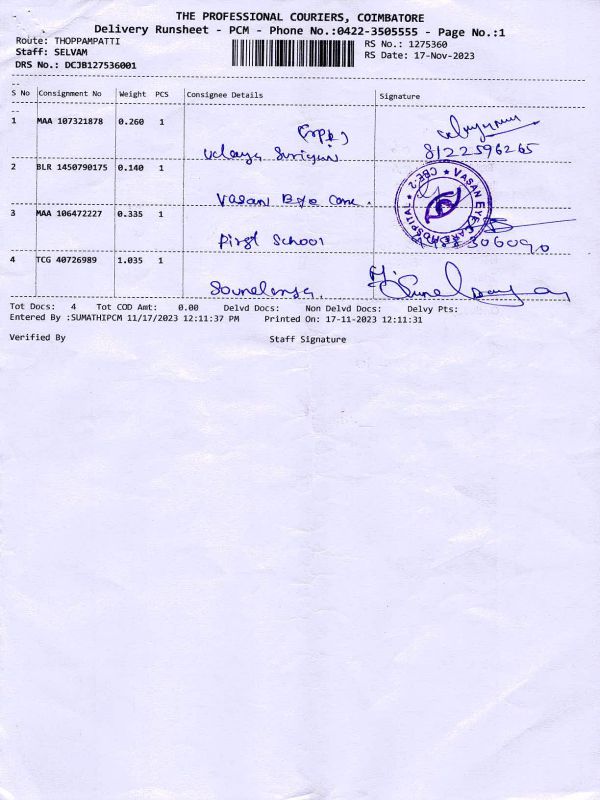 THE PROFESSIONAL COURIERS, COIMBATORE
Delivery Runsheet - PCM - Phone No.:0422-3505555 - Page No.:1
Route: THOPPAMPATTI
RS No.: 1275360
Staff: SELVAM
RS Date: 17-Nov-2023
DRS No.: DCJB127536001
S No Consignment No Weight PCS Consignee Details Signature
1 MAA 107321878 0.260 1
8122596265
2 BLR 1450790175 0.140 1
VASAN EYE CARE HOSPITAL ★ CBE-2 ★
Vasan Eye Care.
3 MAA 106472227 0.335 1
First School
4 TCG 40726989 1.035 1
Tot Docs: 4 Tot COD Amt: 0.00 Delvd Docs: Non Delvd Docs: Delvy Pts:
Entered By :SUMATHIPCM 11/17/2023 12:11:37 PM Printed On: 17-11-2023 12:11:31
Verified By Staff Signature